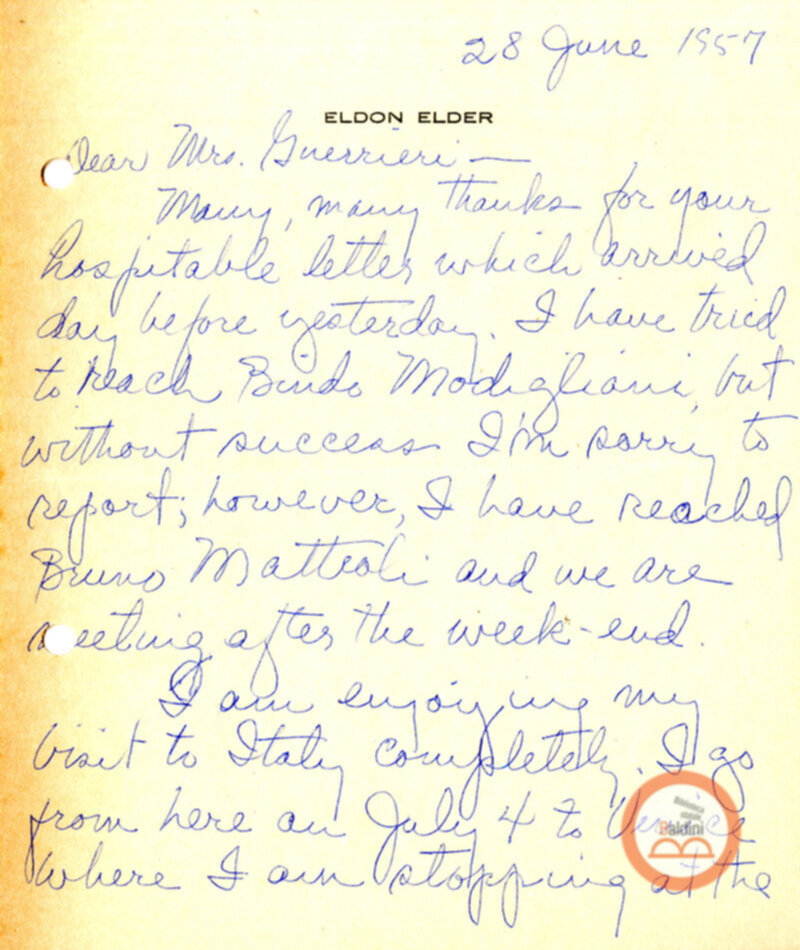 28 June 1957
ELDON ELDER
Dear Mrs. Guerrieri —
Many, many thanks for your
hospitable letter which arrived
day before yesterday. I have tried
to reach Bindo Modigliani, but
without success I'm sorry to
report; however, I have reached
Bruno Mattioli and we are
meeting after the week-end.
I am enjoying my
visit to Italy completely. I go
from here on July 4 to Venice
where I am stopping at the
Biblioteca
statale
Baldini